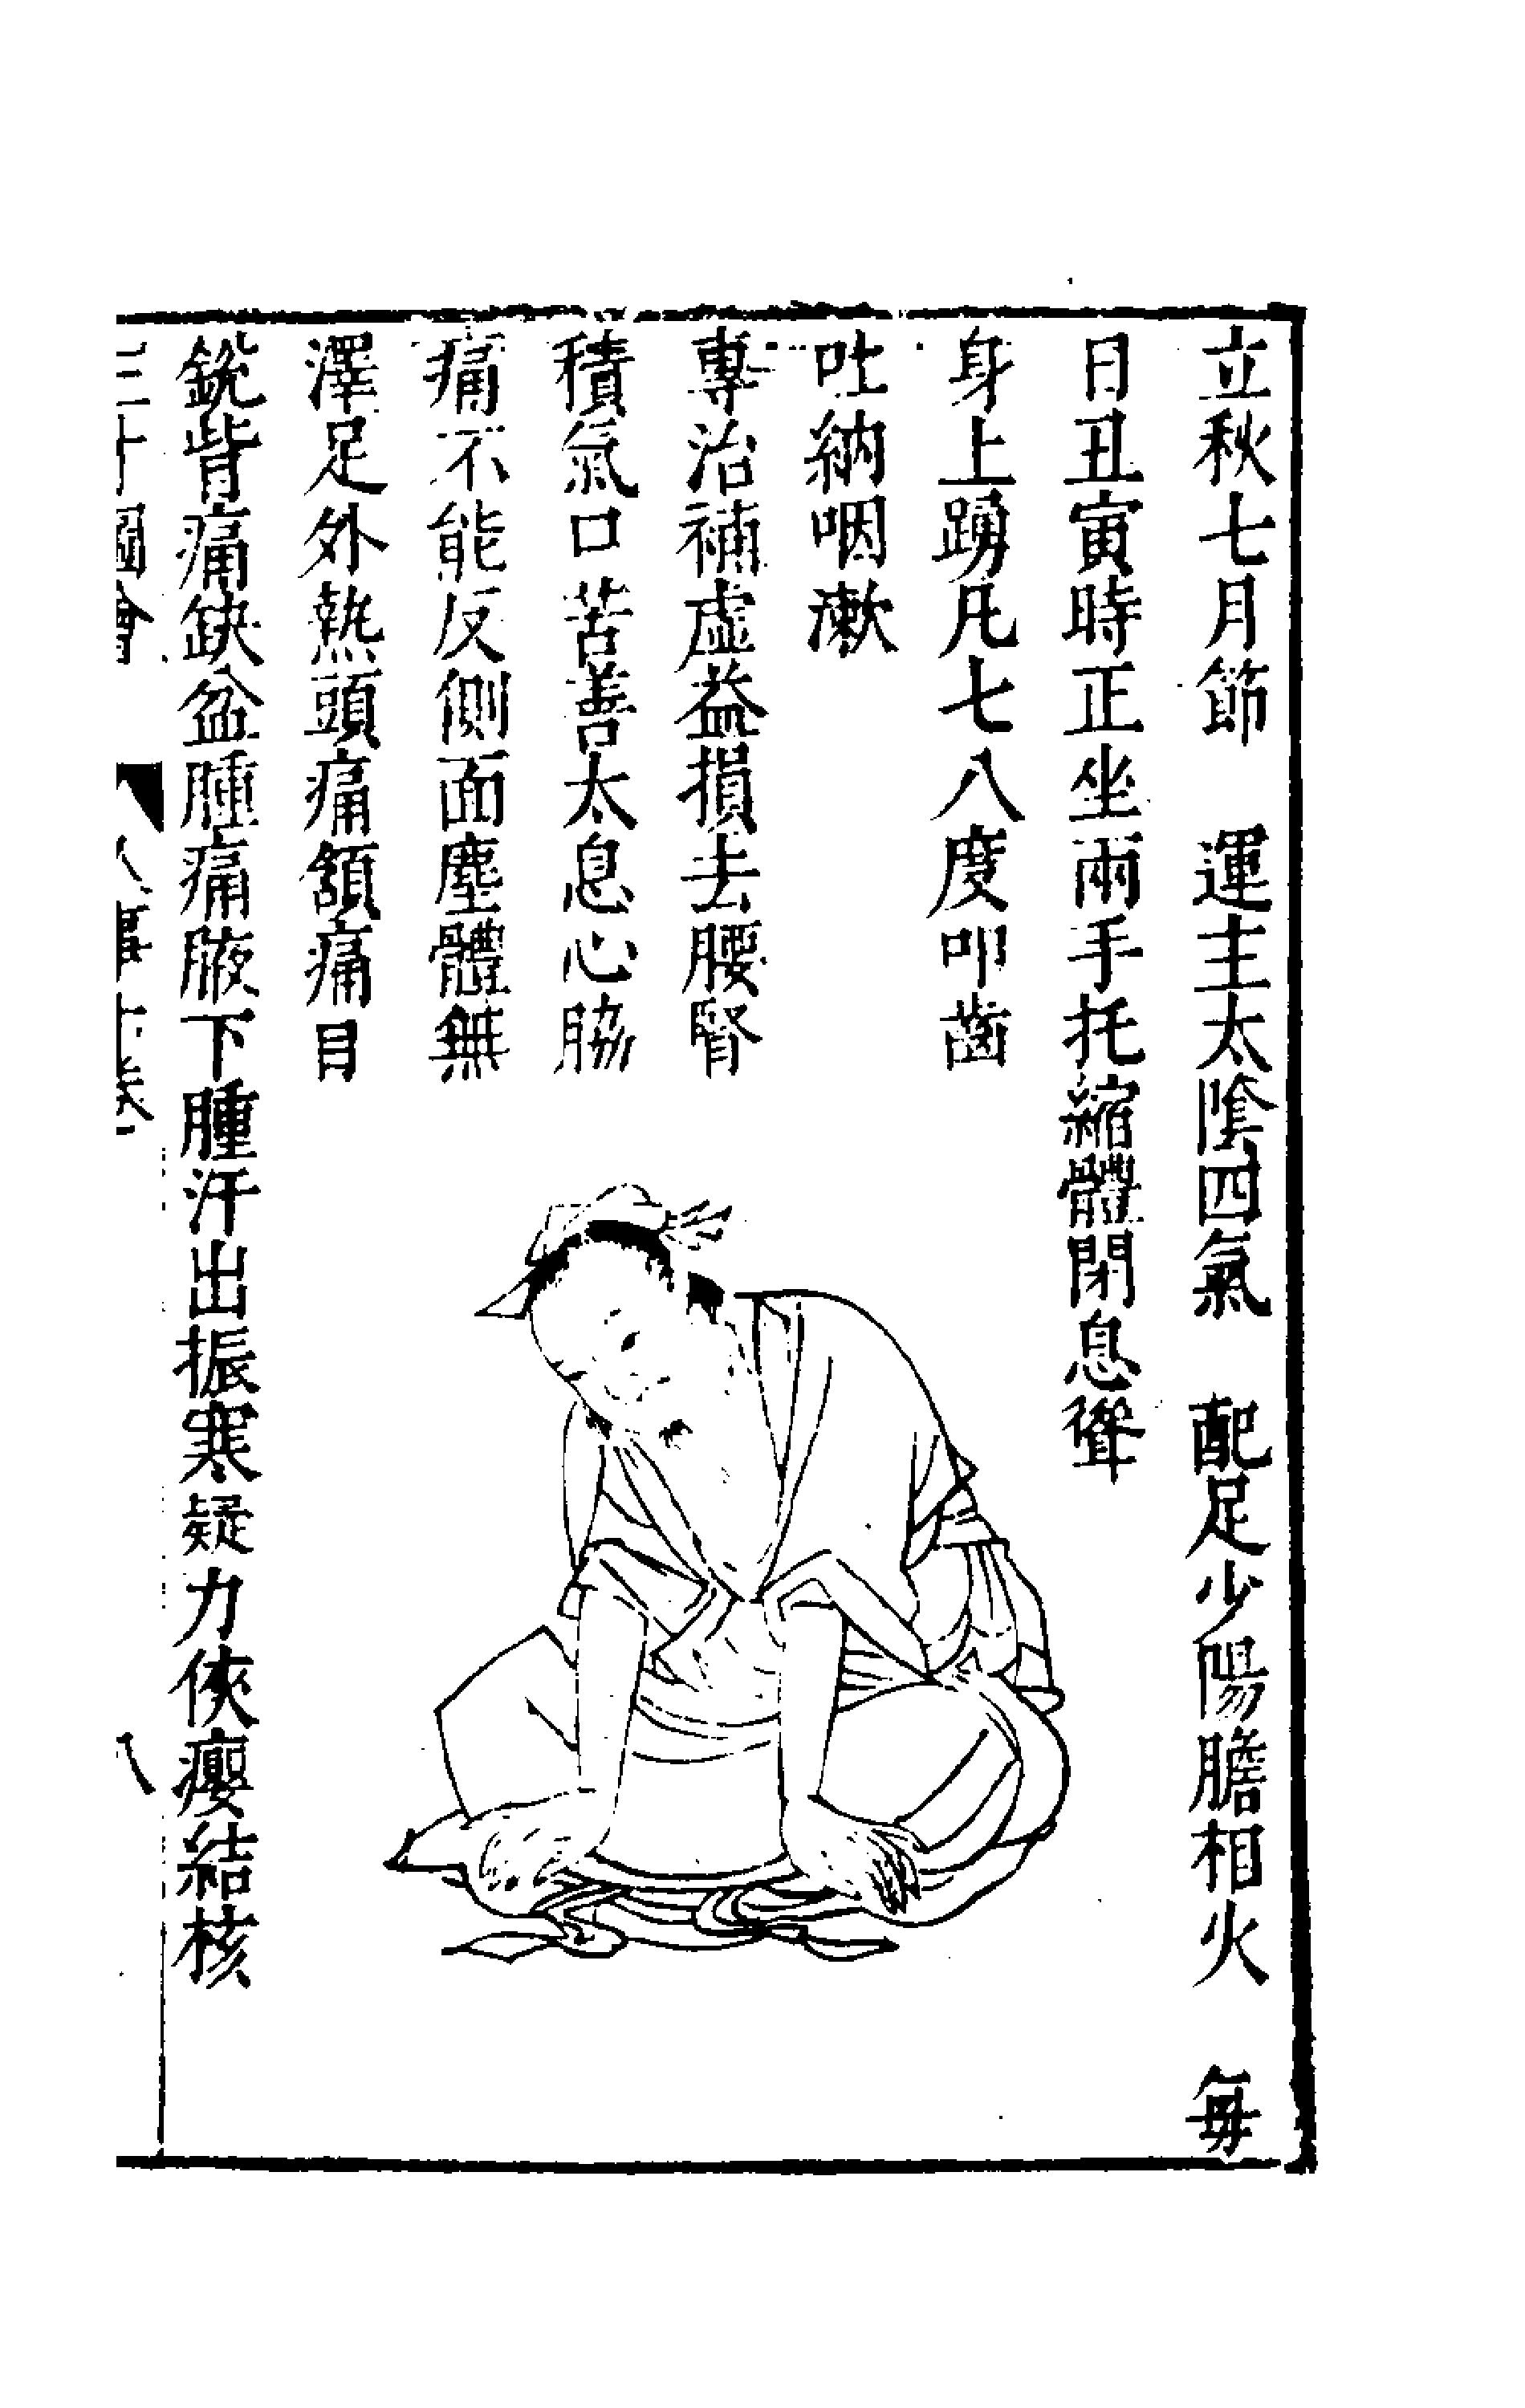 立秋七月節　運主太陰四氣　配足少陽膽相火　每
日丑寅時正坐兩手托縮體閉息聳
身上踴凡七八度叩齒
吐納咽漱
專治補虛益損去腰腎
積氣口苦善太息心脇
痛不能反側面塵體無
澤足外熱頭痛頷痛目
銳眥痛缺盆腫痛腋下腫汗出振寒疑力俠癭結核
三才圖會　人事十卷　八